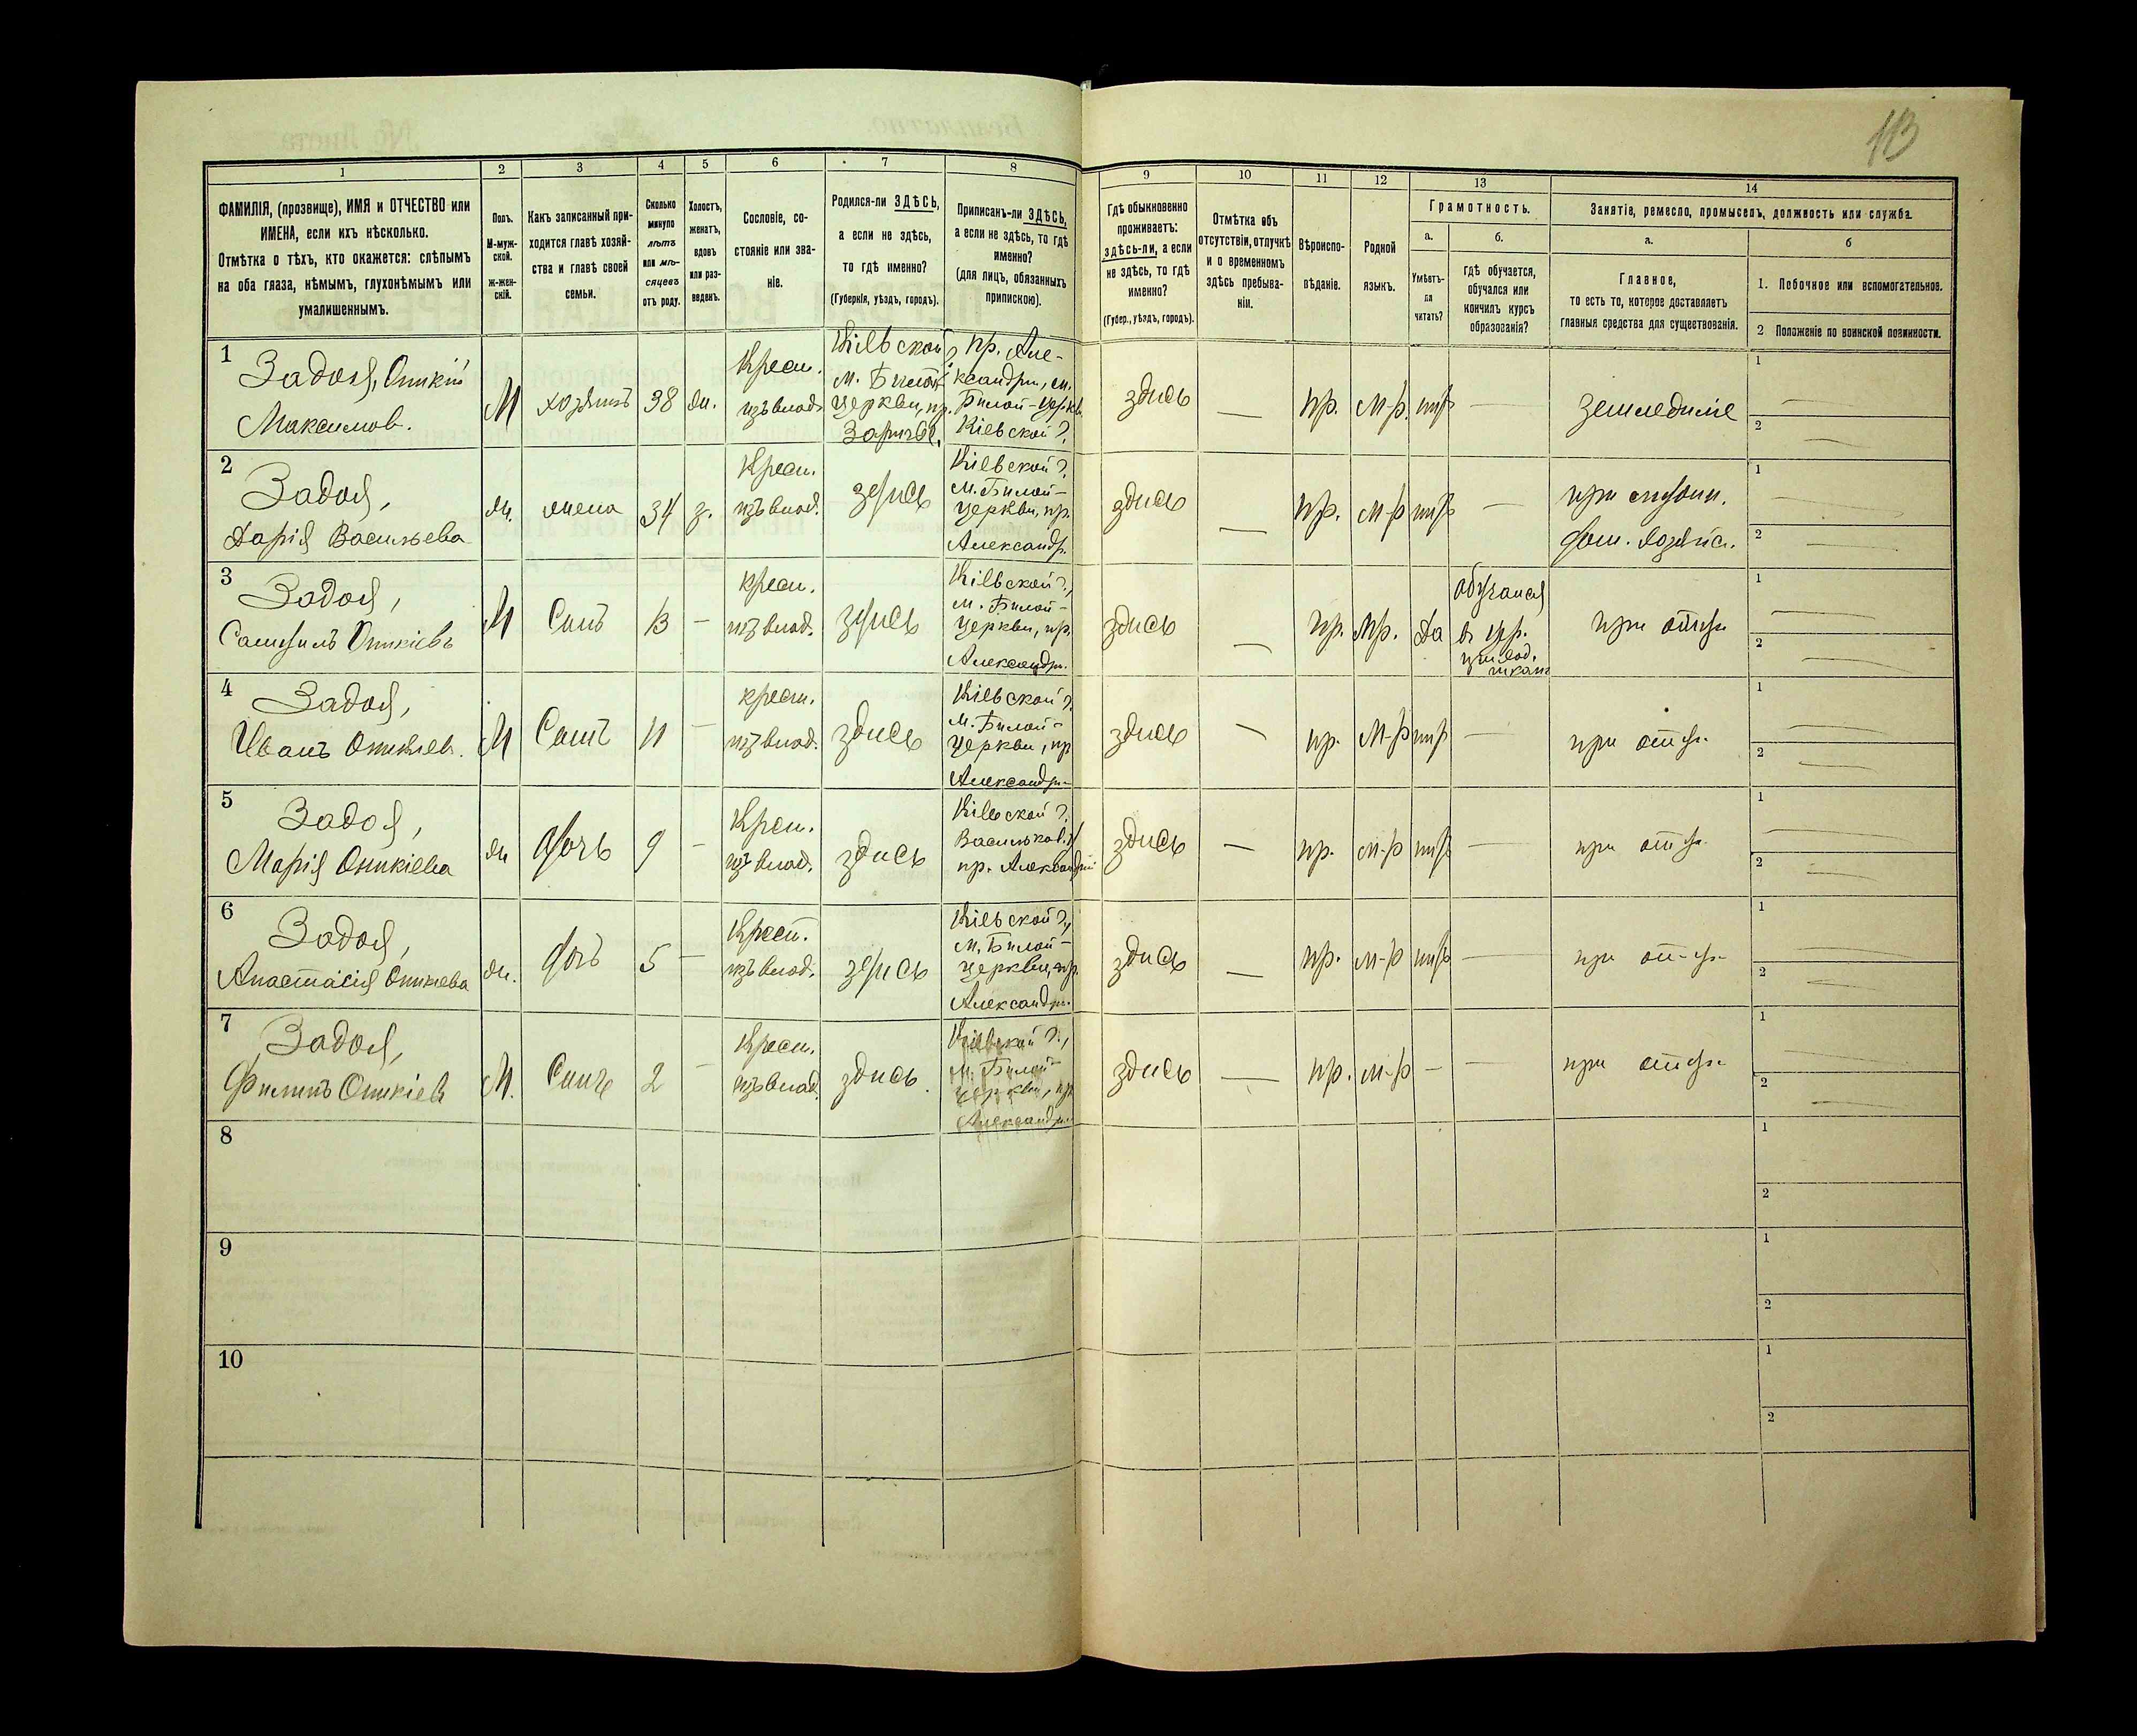 113
1
2
3
4
5
6
7
8
9
10
11
12
13
14
ФАМИЛІЯ, (прозвище), ИМЯ и ОТЧЕСТВО или
ИМЕНА, если ихъ нѣсколько.
Отмѣтка о тѣхъ, кто окажется: слѣпымъ
на оба глаза, нѣмымъ, глухонѣмымъ или
умалишеннымъ.
Полъ.
М-муж-
ской.
ж-жен-
скій.
Какъ записанный при-
ходится главѣ хозяй-
ства и главѣ своей
семьи.
Сколько
минуло
лѣтъ
или мѣ-
сяцевъ
отъ роду.
Холостъ,
женатъ,
вдовъ
или раз-
веденъ.
Сословіе, со-
стояніе или зва-
ніе.
Родился-ли ЗДѢСЬ,
а если не здѣсь,
то гдѣ именно?
(Губернія, уѣздъ, городъ).
Приписанъ-ли ЗДѢСЬ,
а если не здѣсь, то гдѣ
именно?
(для лицъ, обязанныхъ
припискою).
Гдѣ обыкновенно
проживаетъ:
здѣсь-ли, а если
не здѣсь, то гдѣ
именно?
(Губер., уѣздъ, городъ).
Отмѣтка объ
отсутствіи, отлучкѣ
и о временномъ
здѣсь пребыва-
ніи.
Вѣроиспо-
вѣданіе.
Родной
языкъ.
Грамотность.
а.
Умѣетъ-
ли
читать?
б.
гдѣ обучается,
обучался или
кончилъ курсъ
образованія?
Занятіе, ремесло, промыселъ, должность или служба.
а.
Главное,
то есть то, которое доставляетъ
главныя средства для существованія.
б
1. Побочное или вспомогательное.
2 Положеніе по воинской повинности.
1
Задоя, Оникій
Максимов.
М
хозяинъ
38
ж.
Крест.
изъ влад.
Кіевской г.
м. Билой
Церкви, пр.
Заричье.
пр. Але-
ксандри, м.
Билой-Церкв.
Кіевской г.
здись
—
пр.
м-р.
нитъ
—
земледиліе
1
2
2
Задоя,
Дарія Васильева
ж.
жена
34
з.
Крест.
изъ влад.
здись
Кіевской г.
м. Билой-
Церкви, пр.
Александр.
здись
—
пр.
м-р
нитъ
—
дом. хозяйс.
1
2
3
Задоя,
Самуилъ Оникіевъ
М
Сынъ
13
—
крест.
изъ влад.
здись
Кіевской г.,
м. Билой-
Церкви, пр.
Александри.
здись
—
пр.
Мр.
да
обучался
в цр.
приход.
школ
при отци
1
2
4
Задоя,
Иванъ Оникіев.
М
Сынъ
11
—
крест.
изъ влад.
здись
Кіевской г.
м. Билой-
Церкви, пр
Александри
здись
—
пр.
М-р
нит
—
при отци
1
2
5
Задоя,
Марія Оникіева
ж
дочь
9
—
Крест.
изъ влад.
здись
Кіевской г.
Васильков.у
пр. Александрии
здись
—
пр.
м-р
нитъ
—
при отци
1
2
6
Задоя,
Анастасія Оникіева
ж.
дочъ
5
—
Крест.
изъ влад.
здись
Кіевской г.,
м. Билой-
Церкви, пр.
Александри.
здись
—
пр.
м-р
нитъ
—
при отци
1
2
7
Задоя,
Филипъ Оникіев
М.
Сынъ
2
—
Крест.
изъ влад.
здись.
Кіевской г.,
м. Билой-
Церкви, пр.
Александри
здись
—
пр.
м-р
—
—
при отци
1
2
8
1
2
9
1
2
10
1
2